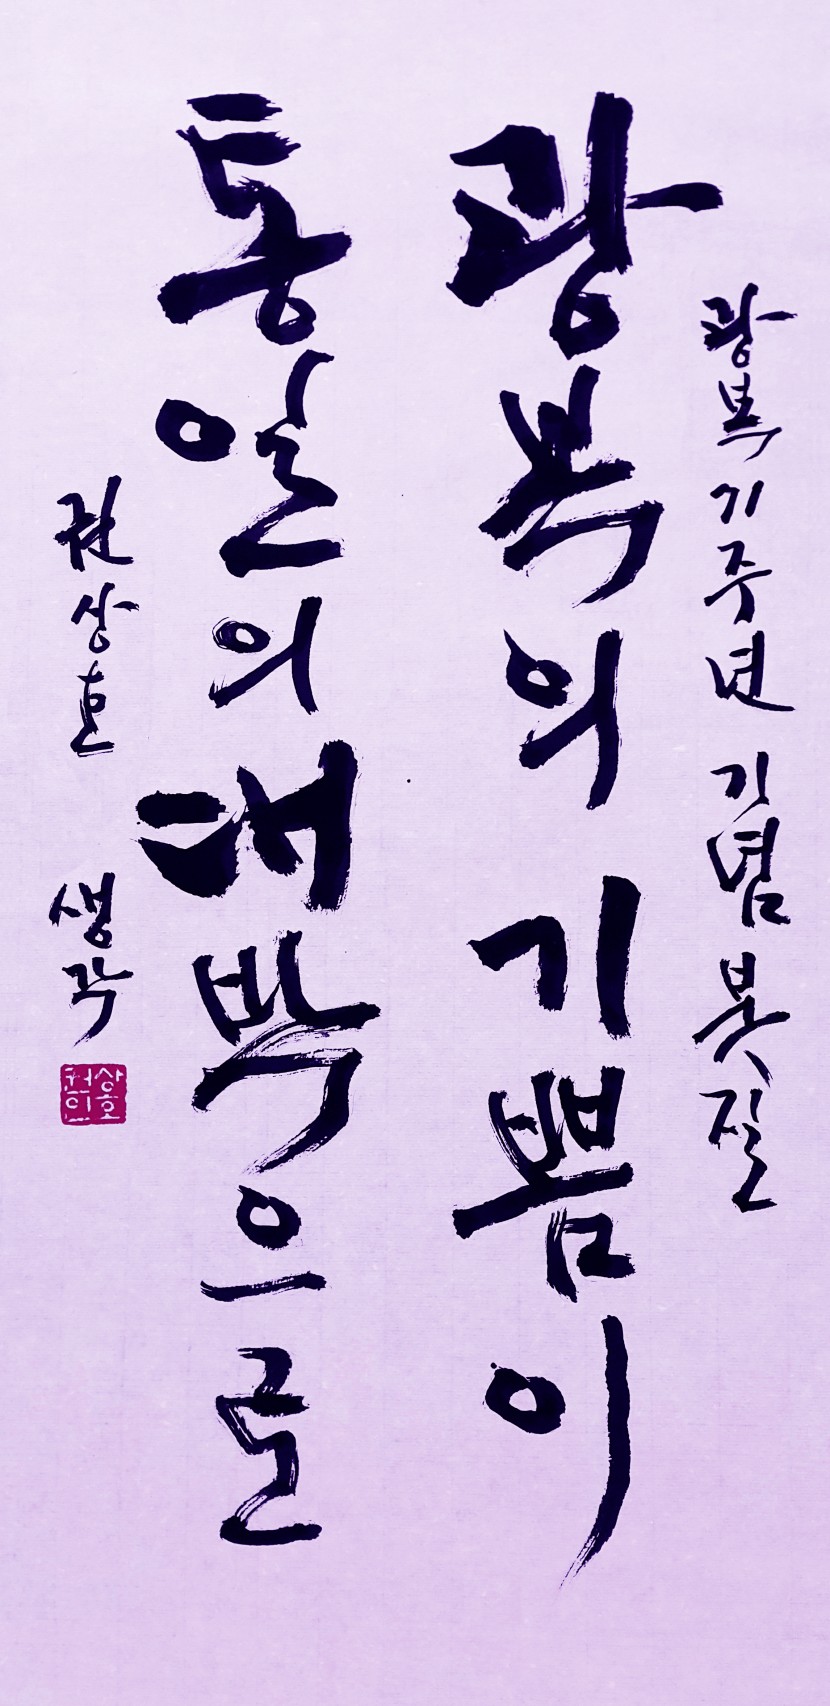 광복 71주년 기념 붓질
광복의 기쁨이
통일의 대박으로
권상호 생각
권상호인